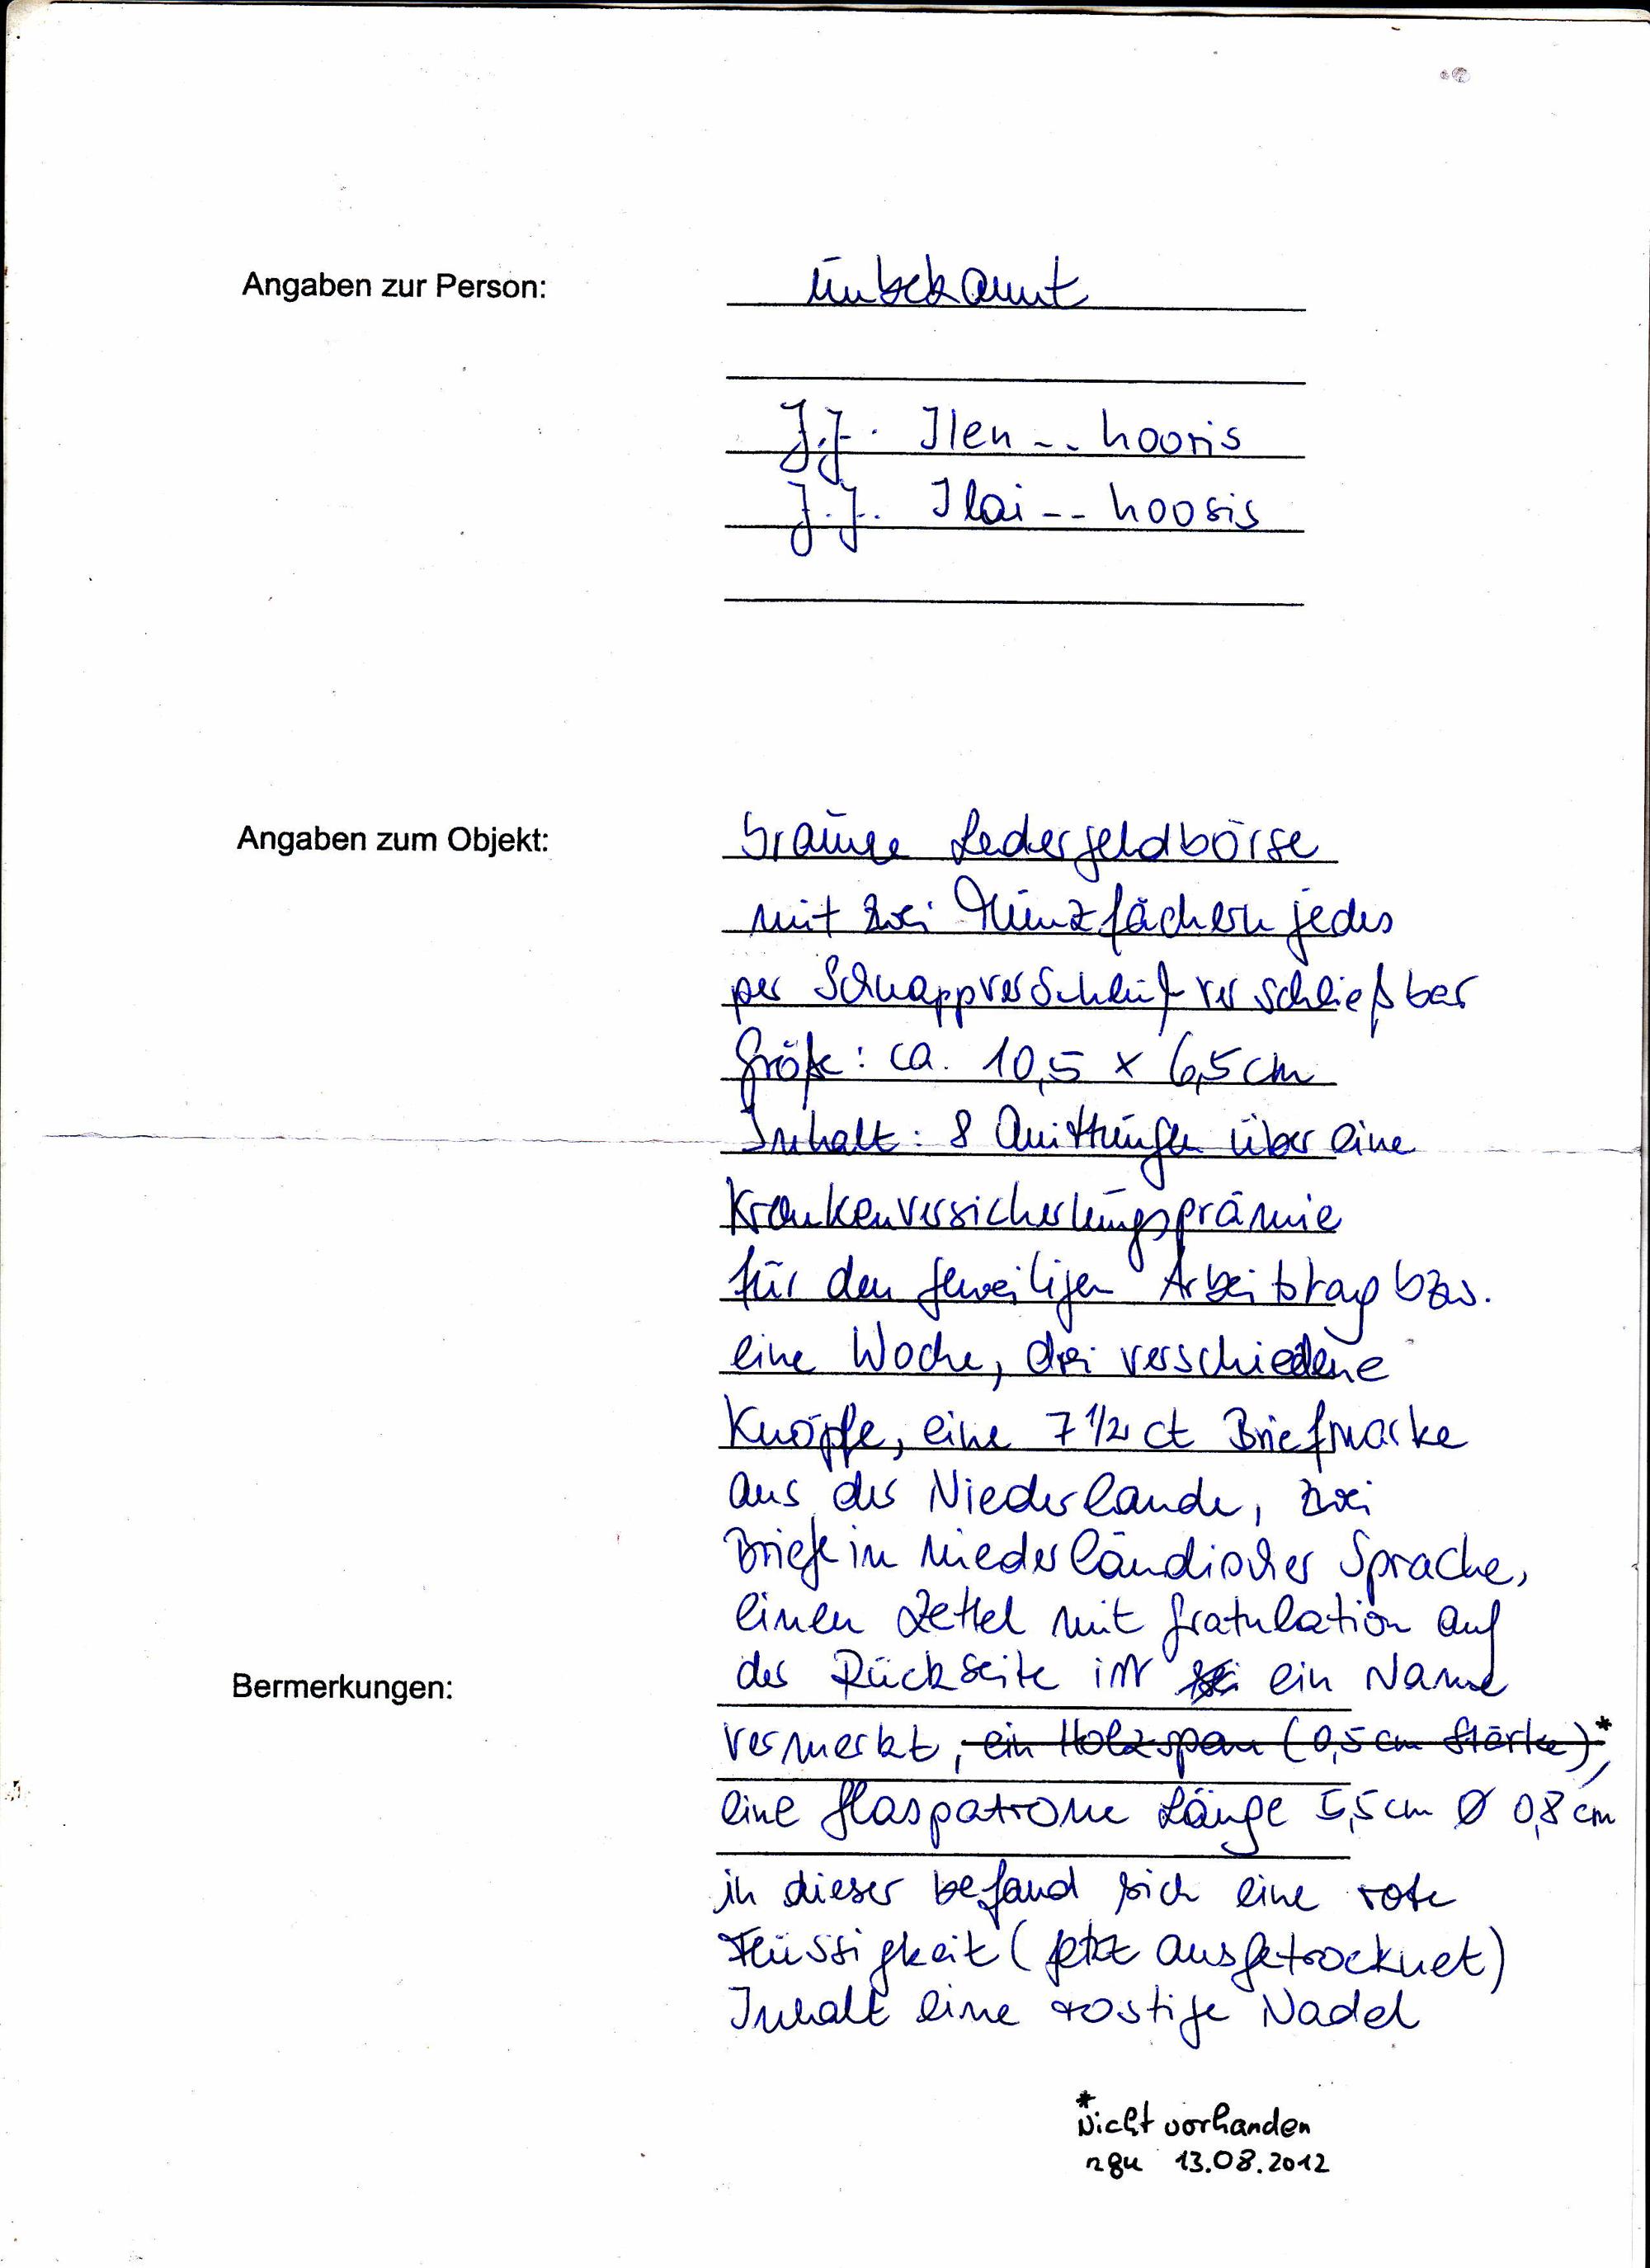 Angaben zur Person: unbekannt
J.J. Ilen -- hooris
J.J. Ilai -- hoosis
Angaben zum Objekt: braune Ledergeldbörse
mit zwei Münzfächern jedes
per Schnappverschluß verschließbar
Größe: ca. 10,5 x 6,5 cm
Inhalt: 8 Quittungen über eine
Krankenversicherungsprämie
für den jeweiligen Arbeitstag bzw.
eine Woche, drei verschiedene
Knöpfe, eine 7 1/2 ct Briefmarke
aus der Niederlande, zwei
Briefe in niederländischer Sprache,
einen Zettel mit Gratulation auf
Bermerkungen: der Rückseite ist ein Name
vermerkt, ein Holzspan (0,5 cm Stärke)*,
eine Glaspatrone Länge 5,5 cm Ø 0,8 cm
in dieser befand sich eine rote
Flüssigkeit (jetzt ausgetrocknet)
Inhalt eine rostige Nadel
*Nicht vorhanden
ngu 13.08.2012